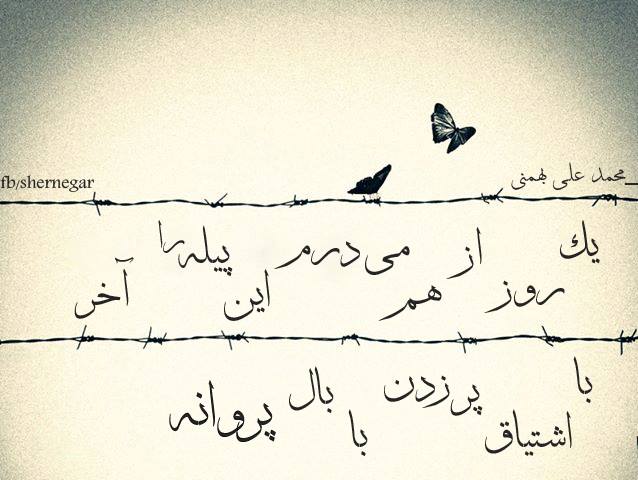 fb/shernegar
محمد علی بهمنی
یك روز از هم می درم این پیله را آخر
با اشتیاق پر زدن با بال پروانه